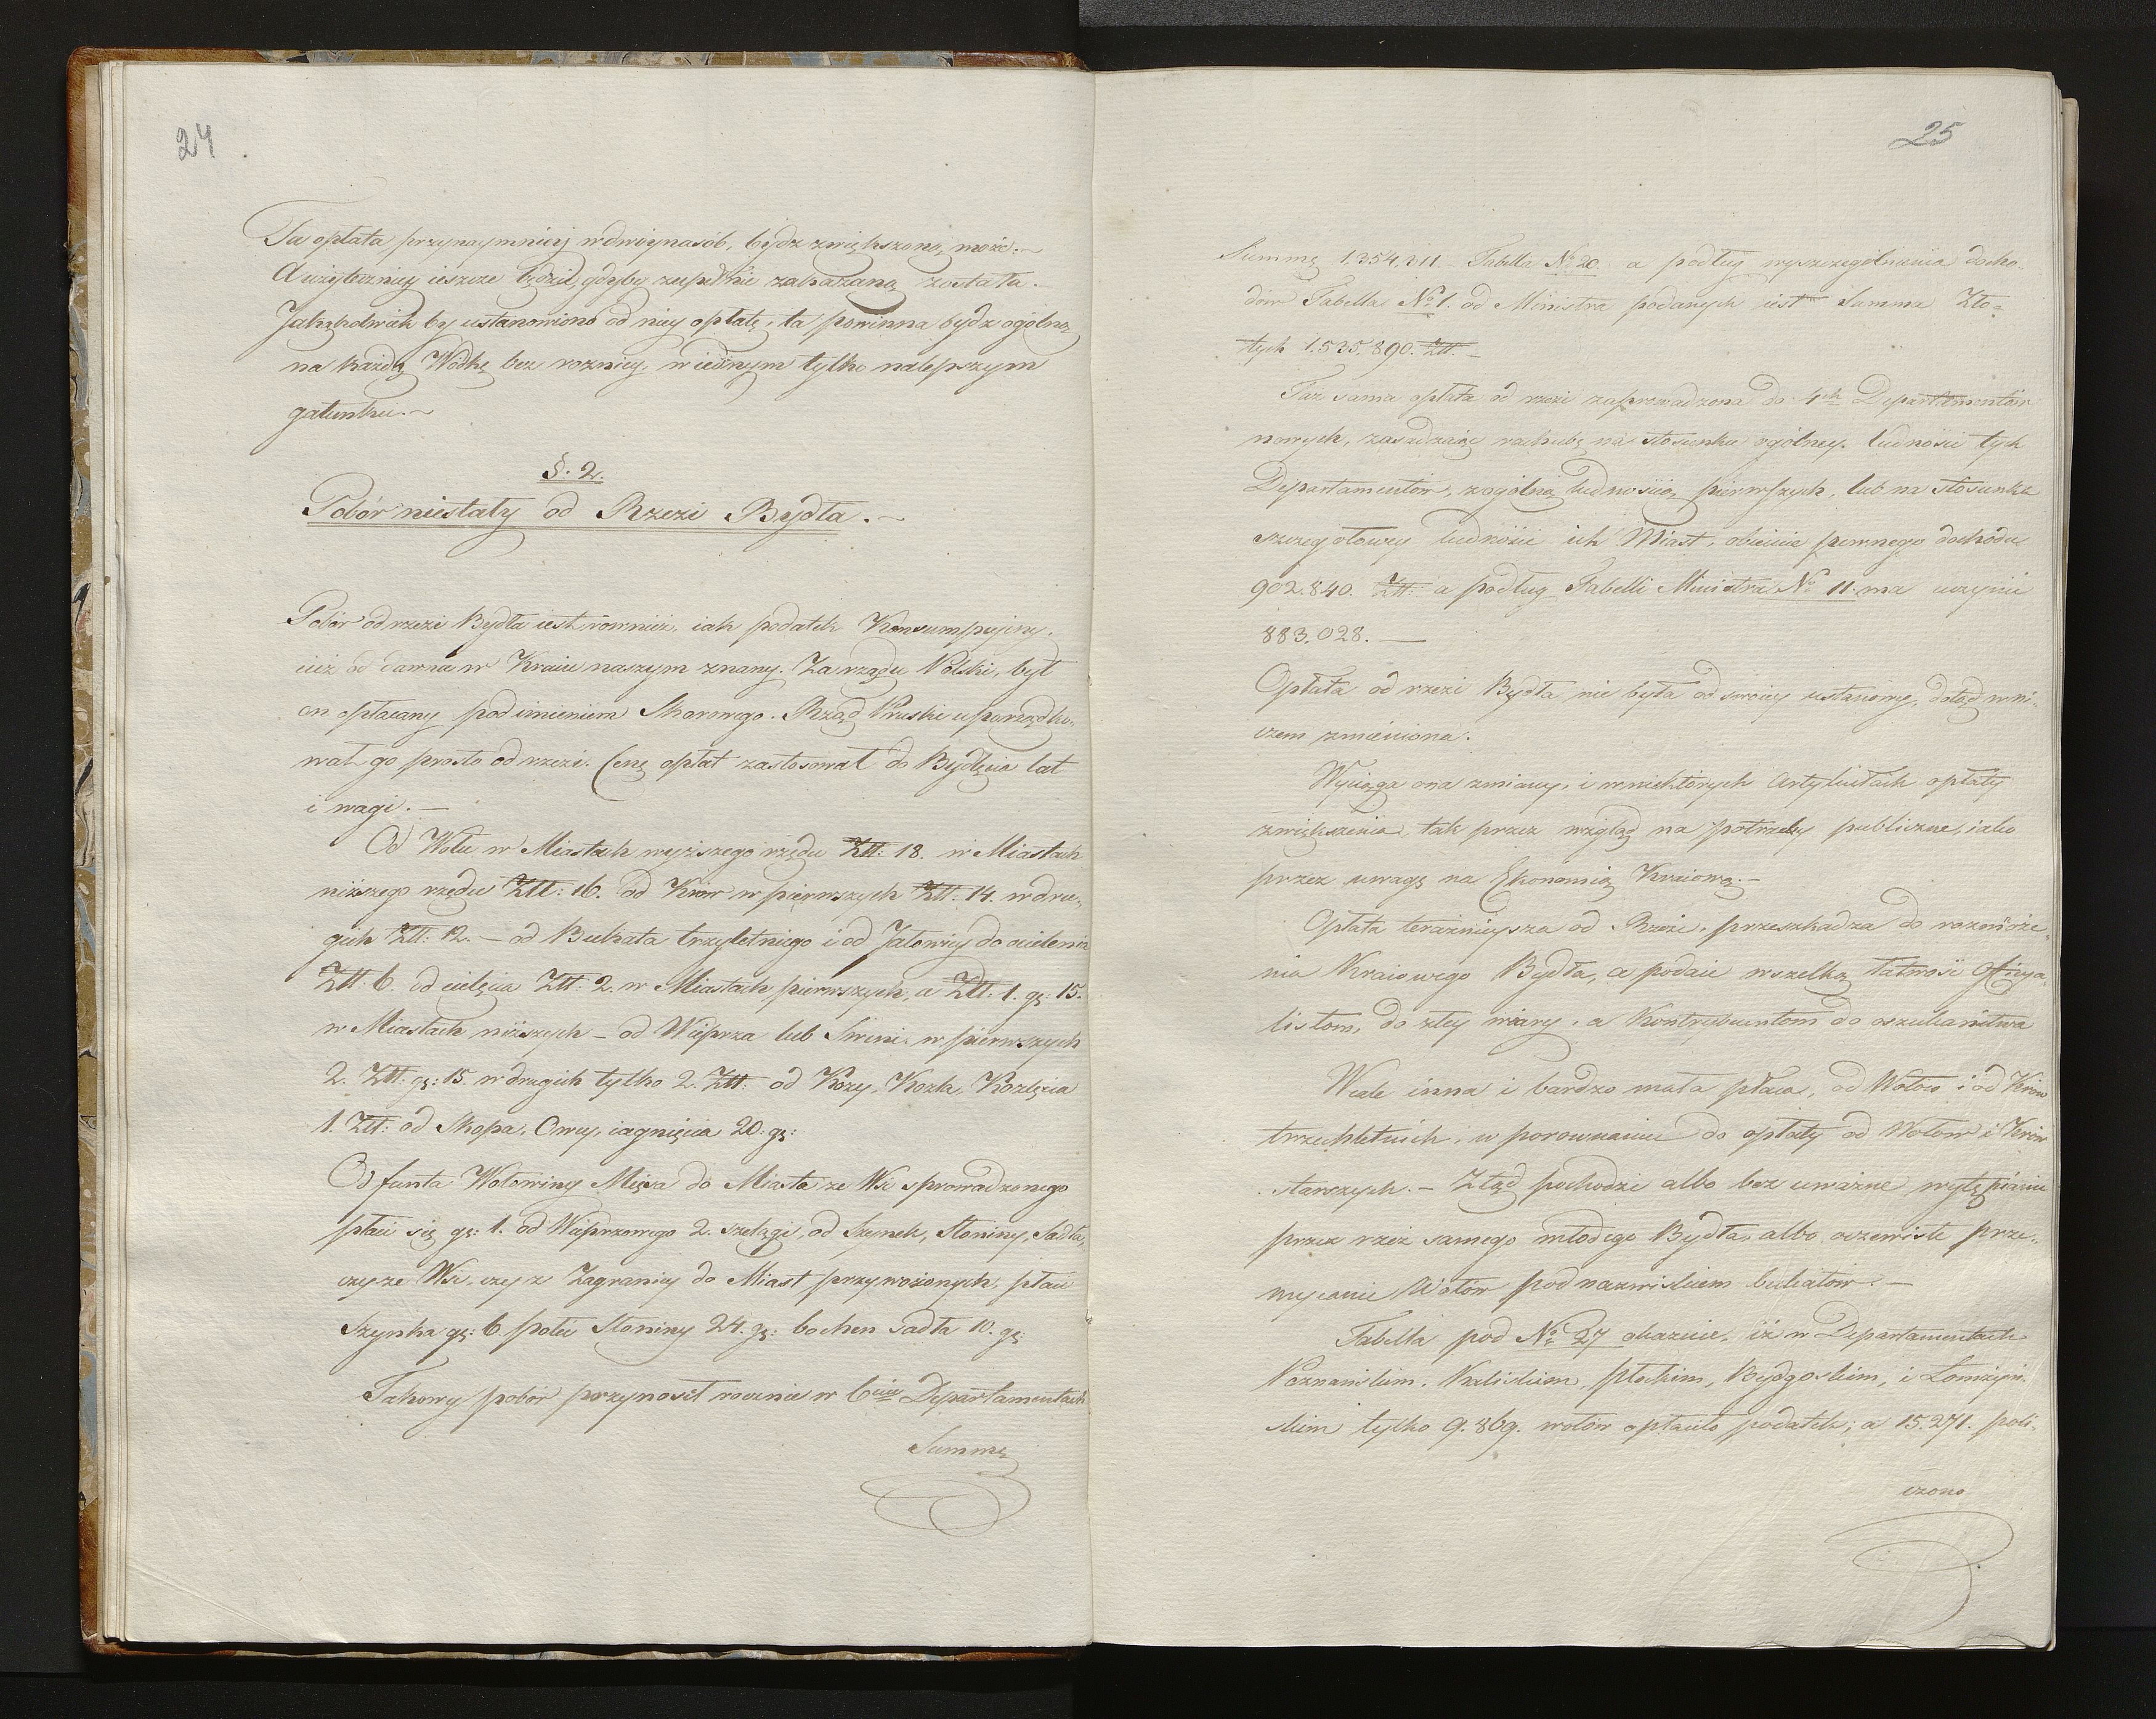 24
Ta opłata przynaymniey w dwoynasób, bydz zwiększoną może.—
A użyteczniey ieszcze będzie, gdyby zupełnie zakazaną została.—
Jakążkolwiek by ustanowiono od niey opłatę, ta powinna bydz ogólną
na każdą Wódkę bez roznicy, w iednym tylko nalepszym
gatunku.—
§. 2.
Pobór niestały od Rzezi Bydła.—
Pobór od rzezi Bydła iest również, iak podatek Konsumpcyiny,
iuż od dawna w Kraiu naszym znany. Za rządu Polski, był
on opłacany pod imieniem Skorowego. Rząd Pruski uporządko-
wał go prosto od rzezi. Cenę opłat zastosował do Bydlęcia lat
i wagi.—
Od Wołu w Miastach wyższego rzędu Złł: 18. w Miastach
niższego rzędu Złł: 16. od Krów w pierwszych Złł: 14. w dru-
gich Złł: 12.— od Buchata trzyletniego i od Jałowicy do ocielenia
Złł: 6. od cielęcia Złł: 2. w Miastach pierwszych, a Złł: 1. gs: 15.
w Miastach niższych — od Wieprza lub Swini w pierwszych
2. Złł: gs: 15. w drugich tylko 2. Złł: od Kozy, Kozła, Koźlęcia
1. Złł: od Skopa, Owcy, iagnięcia 20. gs:
Od funta Wołowiny Mięsa do Miasta ze Wsi sprowadzonego
płaci się gs: 1. od Wieprzowego 2. szelągi, od Szynek, Słoniny, Sadła,
czy ze Wsi, czy z Zagranicy do Miast przywożonych, płaci
Szynka gs: 6. połeć Słoniny 24. gs: bochen sadła 10. gs:
Takowy pobór przynosił rocznie w 6ciu Departamentach
Summę
25
Summę 1.354,311. Tabella No 20. a podług wyszczególnienia docho-
dów Tabella No 1. od Ministra podanych iest Summa Zło-
tych 1.535.890. Złł.—
Taż sama opłata od rzezi zaprowadzona do 4ch Departamentów
nowych, zasadzaiąc rachubę na stosunku ogólney ludności tych
Departamentów, z ogólną ludnością pierwszych, lub na stosunku
szczegółowey ludności ich Miast, obiecuie pewnego dochodu
902.840. Złł: a podług Tabelli Ministra No 11. ma uczynić
883.028.—
Opłata od rzezi Bydła nie była od swoiey ustanowy, dotąd w ni-
czem zmieniona.
Wyciąga ona zmiany, i w niektórych Artykułach opłaty
zwiększenia, tak przez wzgląd na potrzeby publiczne, iako
przez uwagę na Ekonomią Kraiową.—
Opłata teraznieysza od Rzezi, przeszkadza do rozmnoże-
nia Kraiowego Bydła, a podaie wszelką łatwość Oficya-
listom, do złey wiary, a Kontrybuentom do oszukaństwa
Wcale inna i bardzo mała płaca, od Wołów i od Krów
trzechletnich, w porownaniu do opłaty od Wołów i Krów
starszych.— Ztąd pochodzi albo bez uważne wytępianie
przez rzeź samego młodego Bydła, albo oczewiste prze-
mycanie Wołów pod nazwiskiem buchatów.—
Tabella pod No 27 okazuie, iż w Departamentach
Poznańskim, Kaliskim, Płockim, Bydgoskim, i Łomżyń-
skim tylko 9.869. wołów opłaciło podatek; a 15.271. poli-
czono